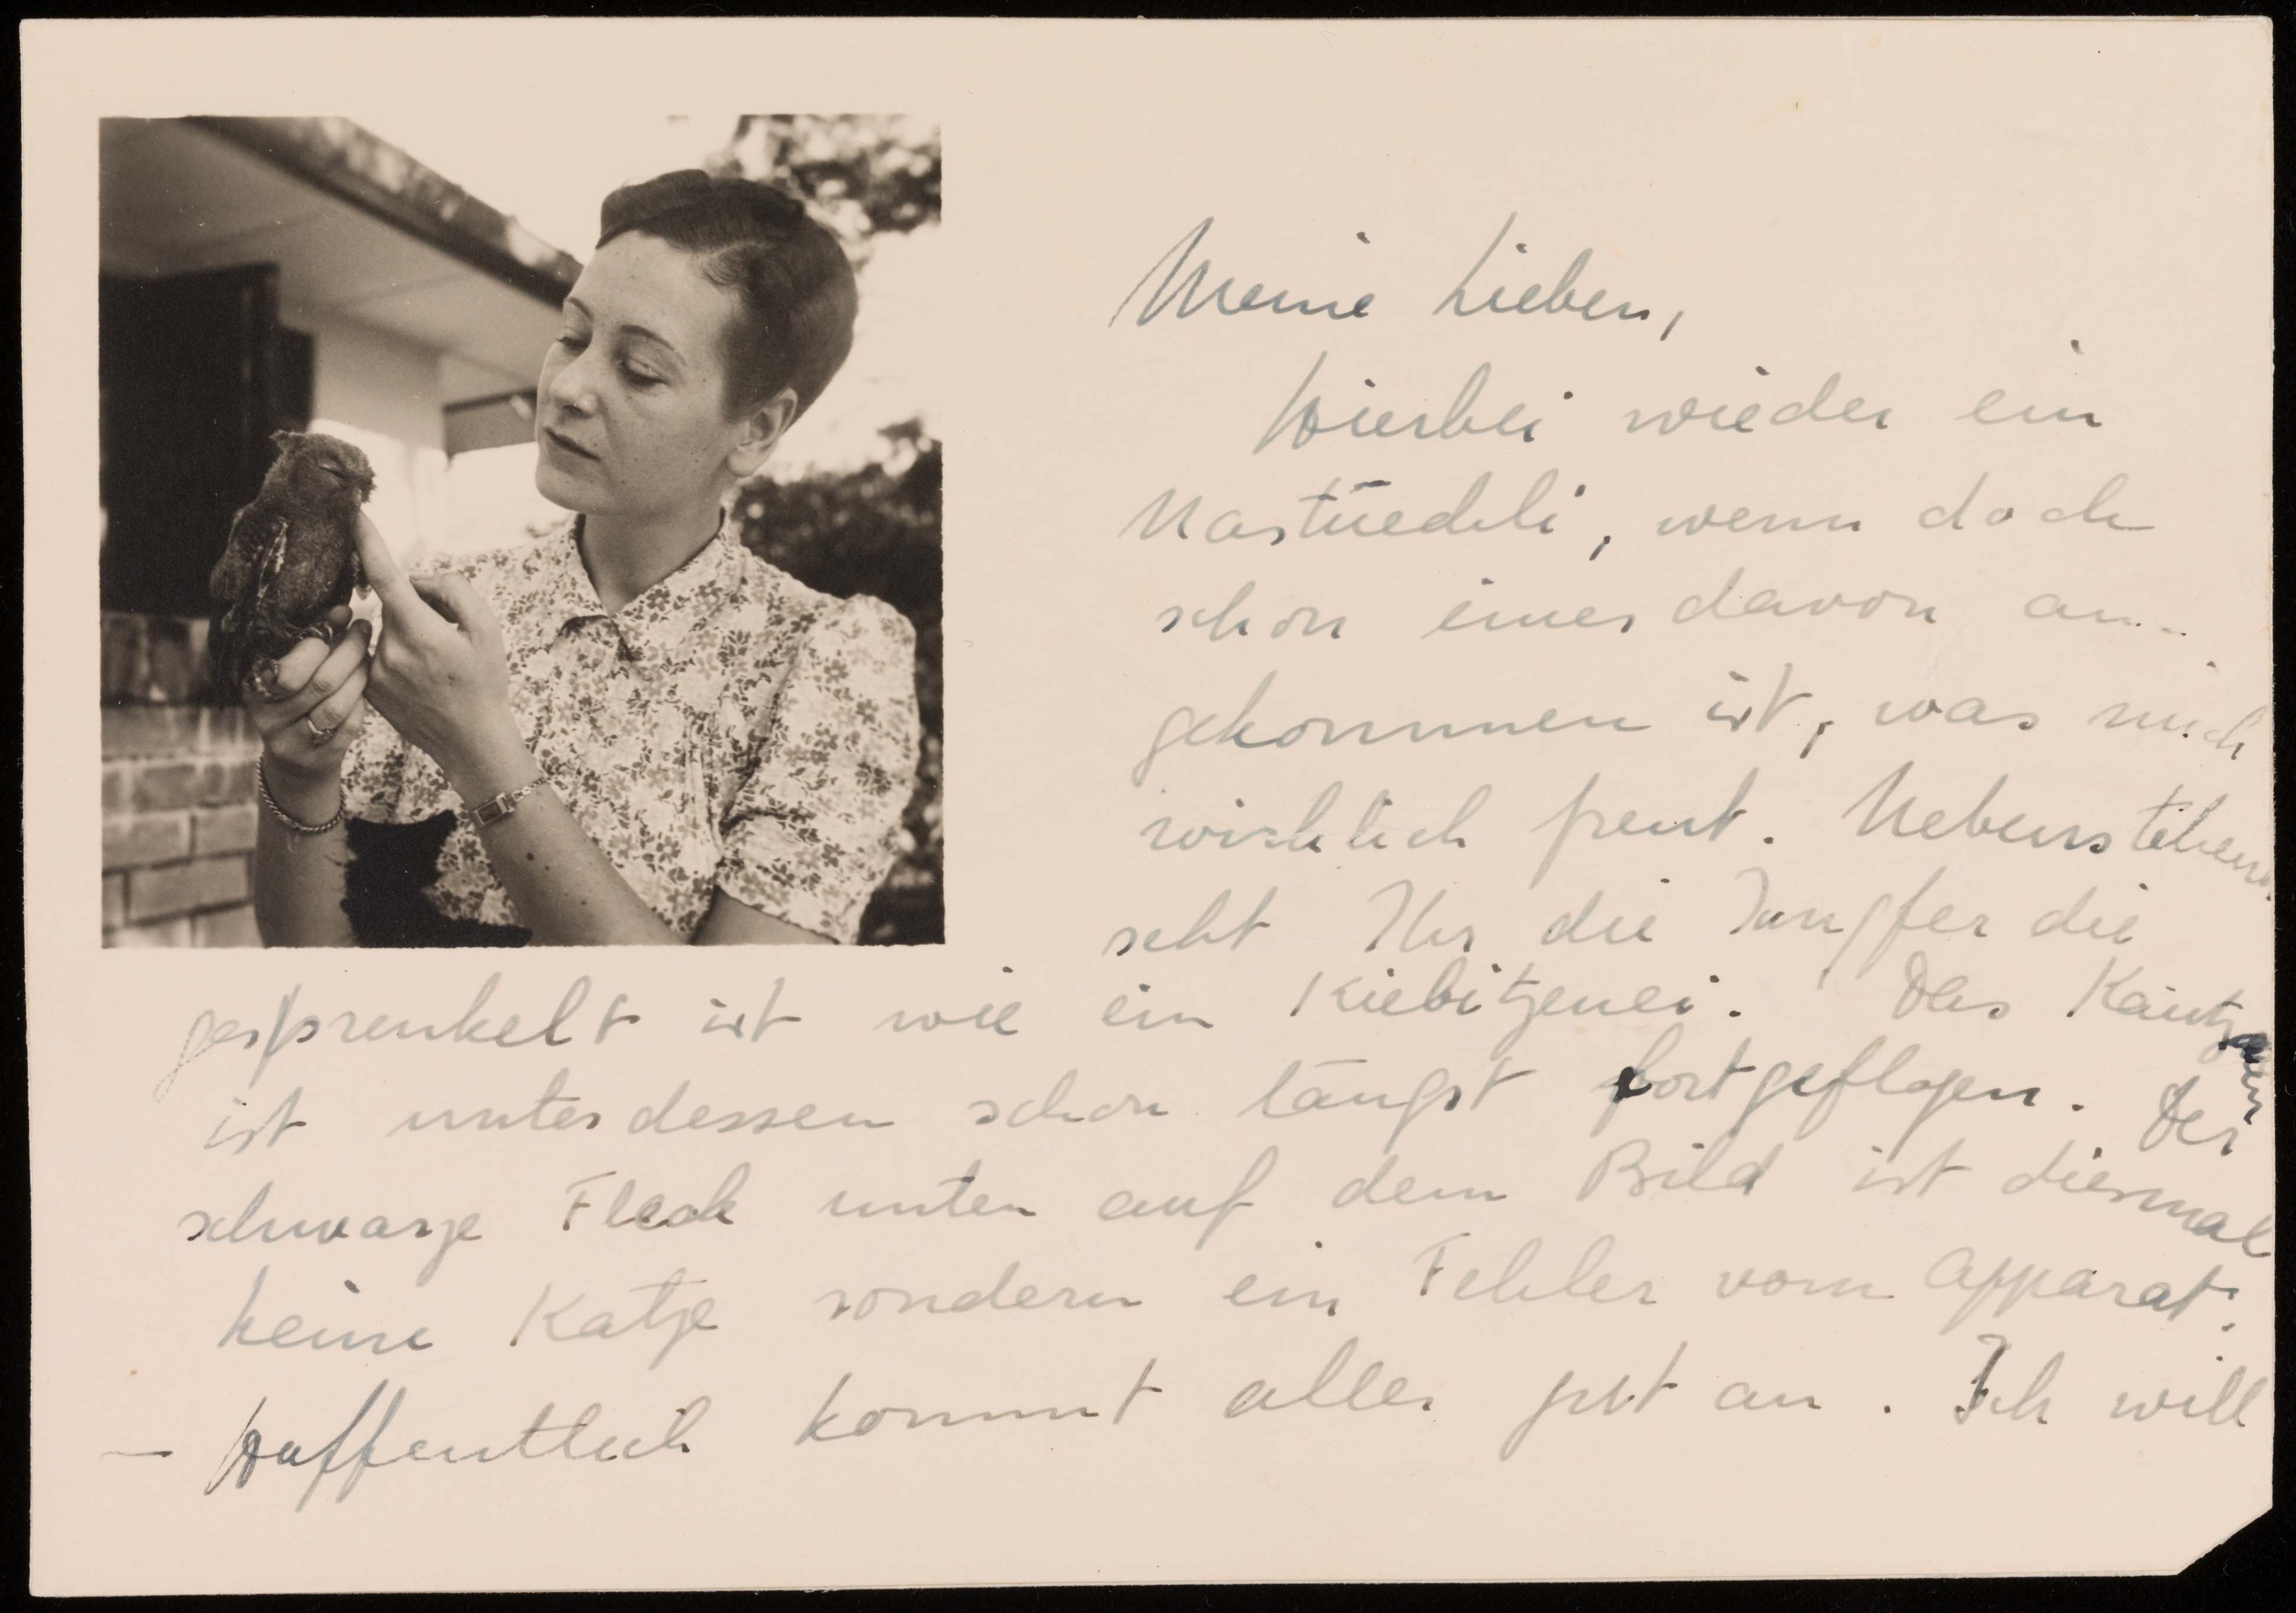 Meine Lieben,
Hierbei wieder ein
Nastüechli, wenn doch
schon eines davon an-
gekommen ist, was mich
wirklich freut. Nebenstehend
seht Ihr die Jungfer die
gesprenkelt ist wie ein Kiebitzenei. Das Käutzchen
ist unterdessen schon längst fortgeflogen. Der
schwarze Fleck unten auf dem Bild ist diesmal
keine Katze sondern ein Fehler vom Apparat.
– Hoffentlich kommt alles gut an. Ich will